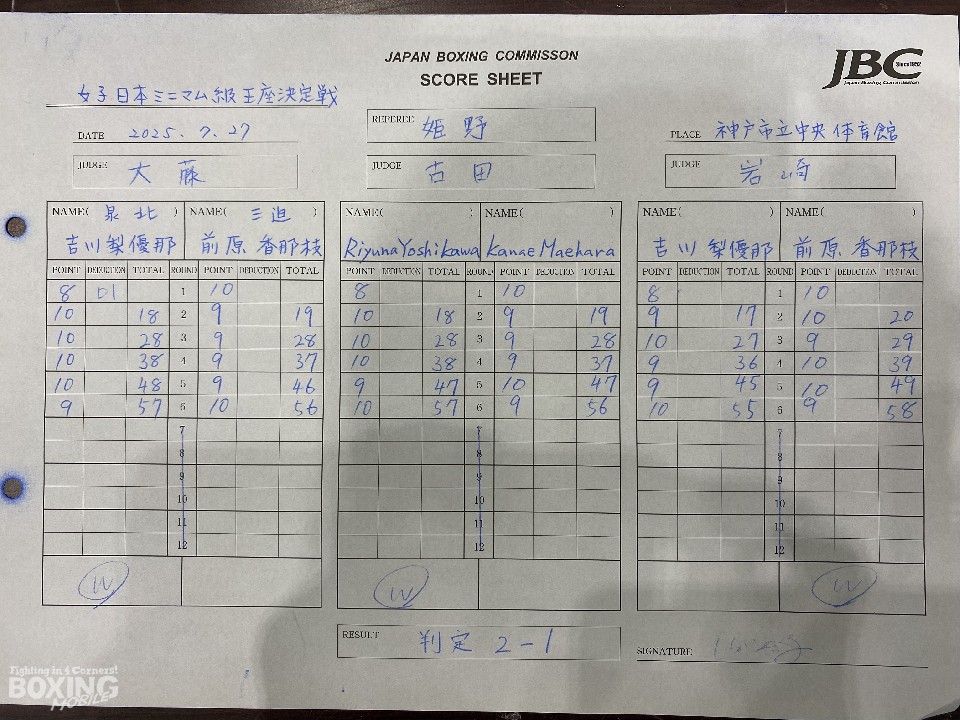 JAPAN BOXING COMMISSON
SCORE SHEET
JBC Since1952
Japan Boxing Commission
女子日本ミニマム級王座決定戦
DATE 2025.7.27
REFEREE 姫野
PLACE 神戸市立中央体育館
JUDGE 大藤
JUDGE 古田
JUDGE 岩崎
NAME( 泉北 ) NAME( 三迫 ) NAME( ) NAME( ) NAME( ) NAME( )
吉川梨優那 前原香那枝 Riyuna Yoshikawa Kanae Maehara 吉川梨優那 前原香那枝
POINT DEDUCTION TOTAL ROUND POINT DEDUCTION TOTAL POINT DEDUCTION TOTAL ROUND POINT DEDUCTION TOTAL POINT DEDUCTION TOTAL ROUND POINT DEDUCTION TOTAL
8 D1 1 10 8 1 10 8 1 10
10 18 2 9 19 10 18 2 9 19 9 17 2 10 20
10 28 3 9 28 10 28 3 9 28 10 27 3 9 29
10 38 4 9 37 10 38 4 9 37 9 36 4 10 39
10 48 5 9 46 9 47 5 10 47 9 45 5 10 49
9 57 6 10 56 10 57 6 9 56 10 55 6 9 58
7 7 7
8 8 8
9 9 9
10 10 10
11 11 11
12 12 12
W W W
RESULT 判定 2-1
SIGNATURE
Fighting in 4 Corners!
BOXING
MOBILE